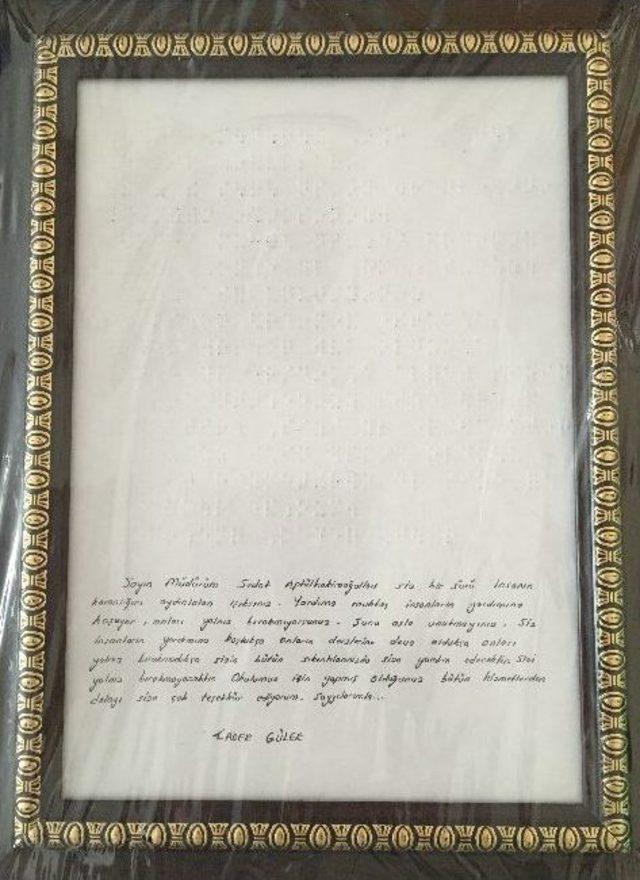 Sayın Müdürüm Sedat siz bir sürü insanın
karanlığını aydınlatan ışıksınız. Yardıma muhtaç insanların yardımına
koşuyor, onları yalnız bırakmıyorsunuz. Şunu asla unutmayınız. Siz
insanların yardımına koştukça onların dertlerine deva oldukça onları
yalnız bırakmadıkça sizin bütün sıkıntılarınızda size yardım edecektir. Sizi
yalnız bırakmayacaktır. Okulumuz için yapmış olduğunuz bütün hizmetlerden
dolayı size çok teşekkür ediyorum. Saygılarımla...
KADER GÜLER